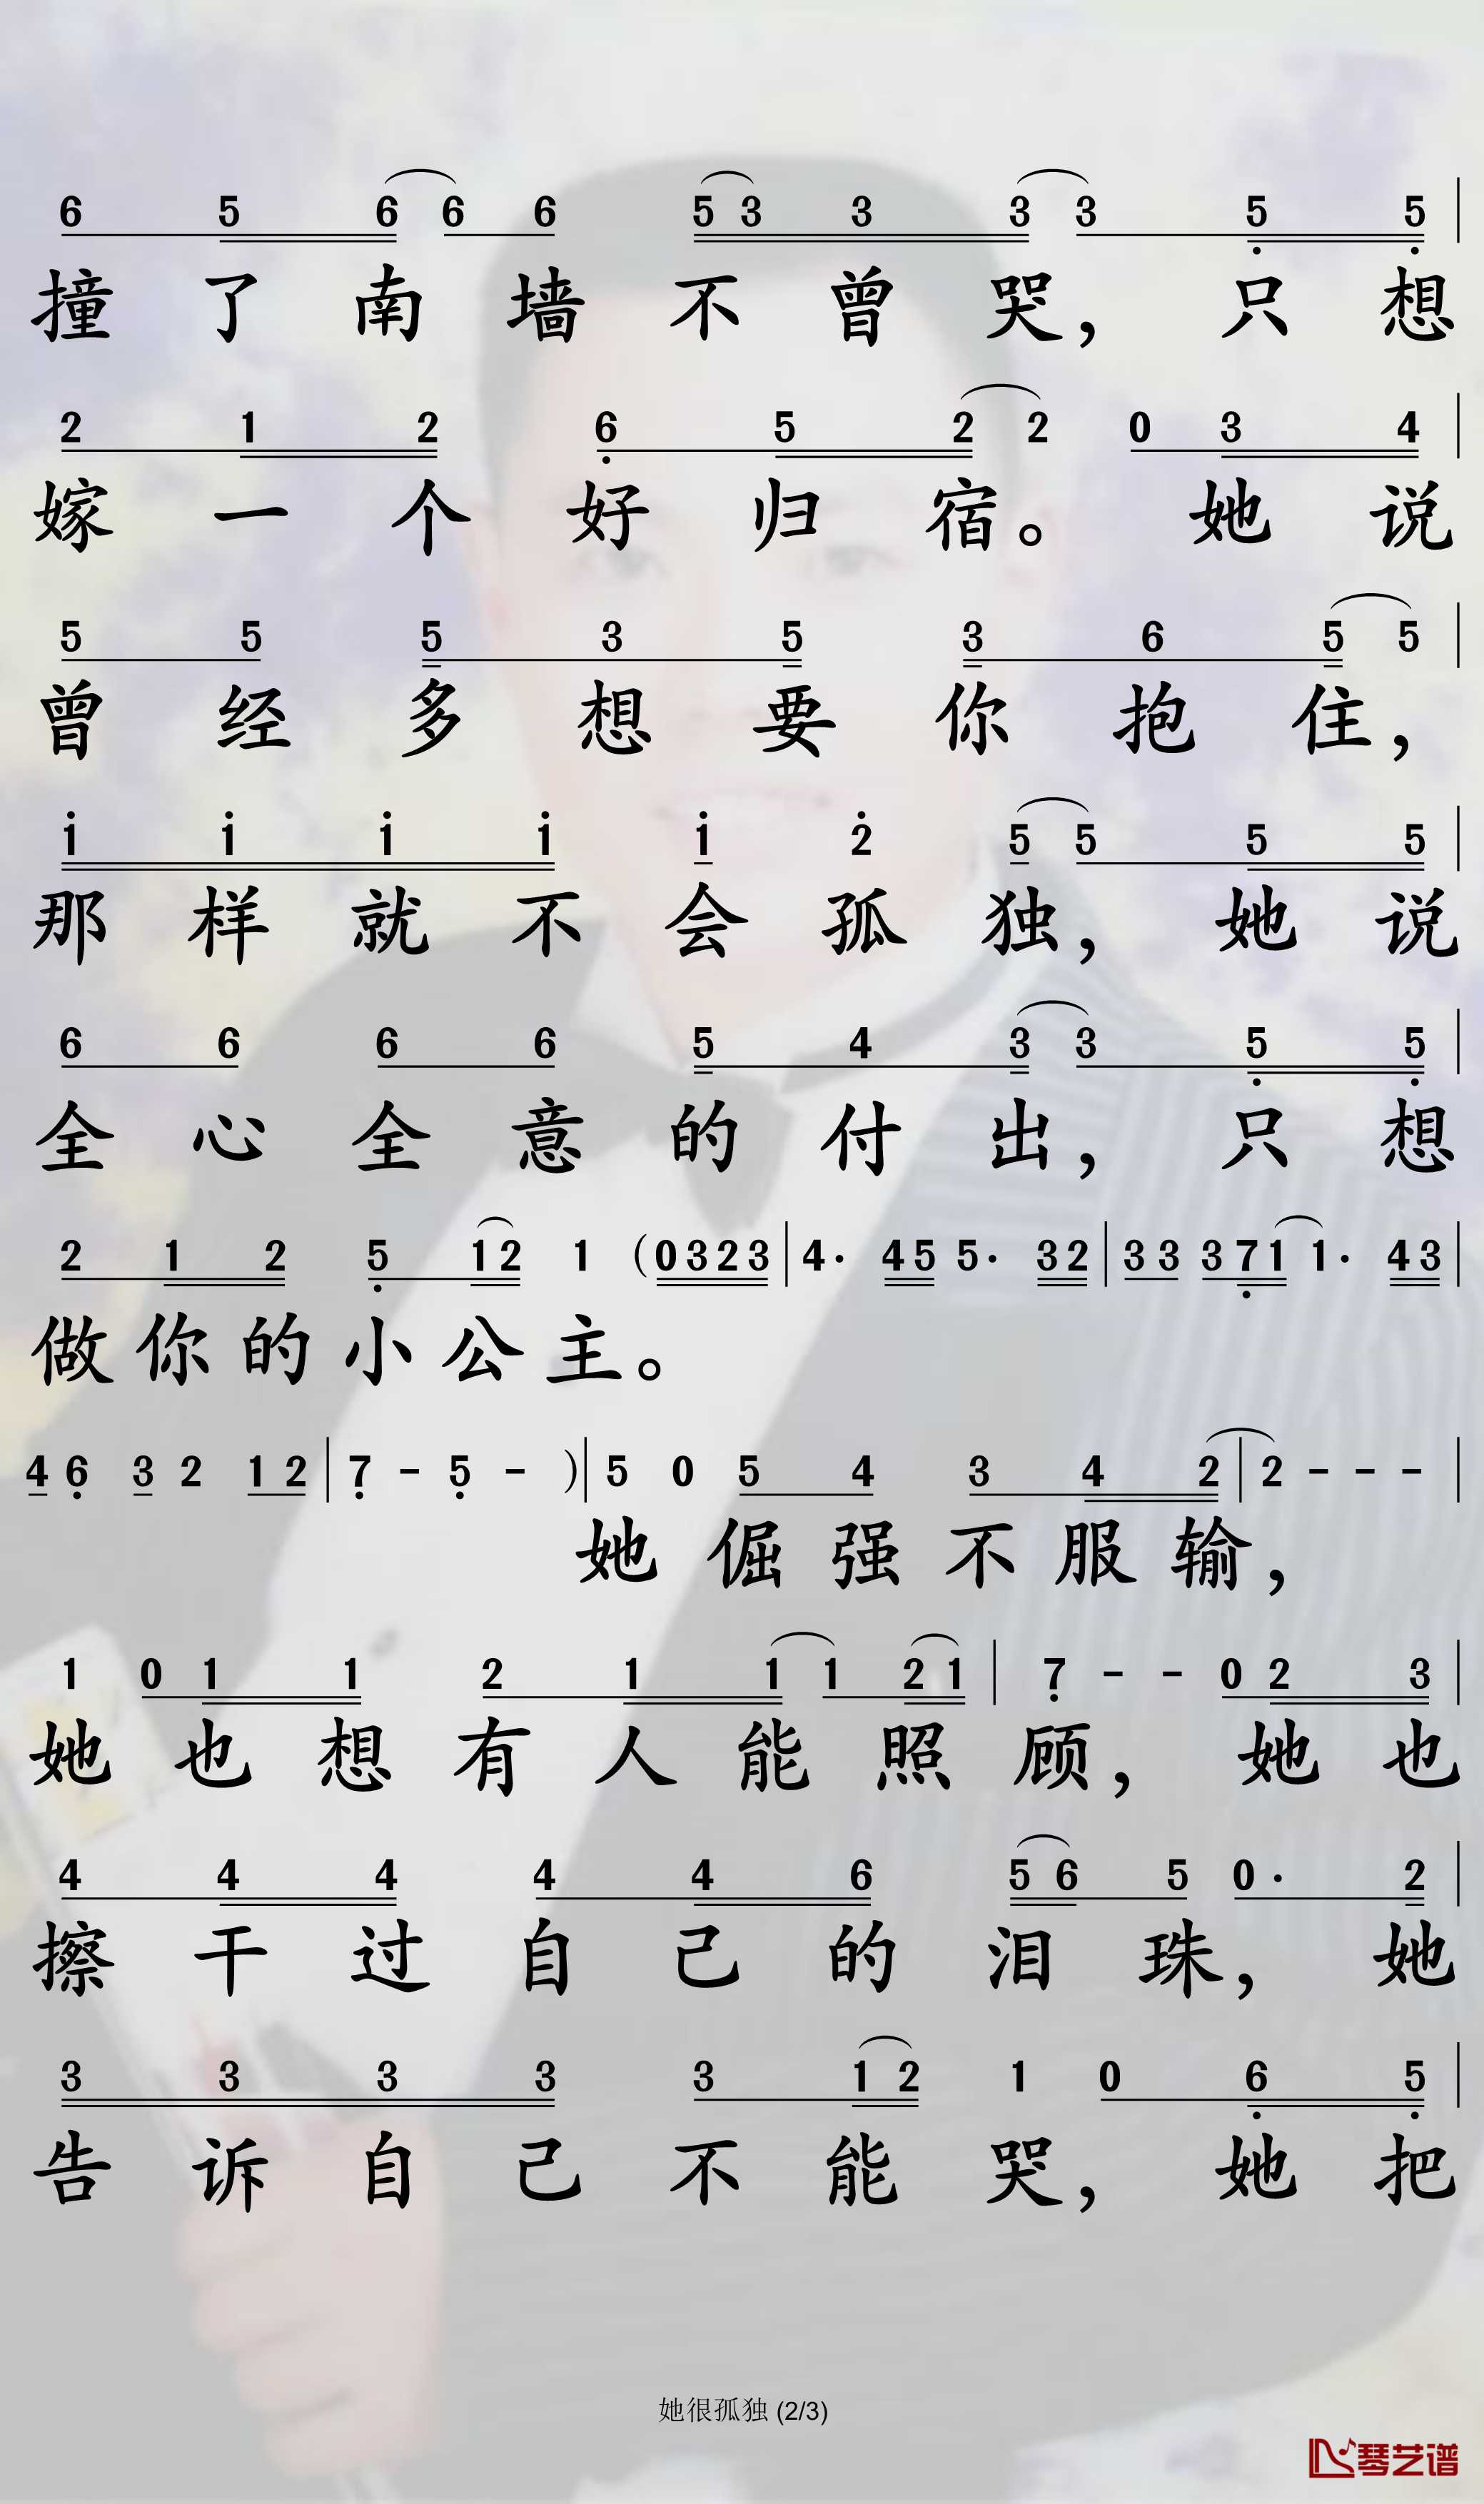 6 5 6 6 6 5 3 3 3 3 5 5
撞了南墙不曾哭，只想
2 1 2 6 5 2 2 0 3 4
嫁一个好归宿。她说
5 5 5 3 5 3 6 5 5
曾经多想要你抱住，
1 1 1 1 1 2 5 5 5 5
那样就不会孤独，她说
6 6 6 6 5 4 3 3 5 5
全心全意的付出，只想
2 1 2 5 1 2 1 (0 3 2 3 | 4· 4 5 5· 3 2 | 3 3 3 7 1 1· 4 3 |
做你的小公主。
4 6 3 2 1 2 | 7 - 5 - ) | 5 0 5 4 3 4 2 | 2 - - - |
她倔强不服输，
1 0 1 1 2 1 1 1 2 1 | 7 - - 0 2 3 |
她也想有人能照顾，她也
4 4 4 4 4 6 5 6 5 0· 2 |
擦干过自己的泪珠，她
3 3 3 3 3 1 2 1 0 6 5 |
告诉自己不能哭，她把
她很孤独 (2/3)
琴艺谱